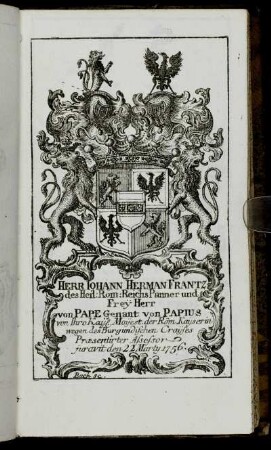 HERR IOHANN HERMAN FRANTZ
des Heil: Röm: Reichs Panner und
Frey Herr
von PAPE Genant von PAPIUS
von Ihro Kaÿs. Majest. der Röm. Kaÿserin
wegen des Burgundischen Craÿses
Præsentirter Assessor
juravit den 24 Martÿ 1756.